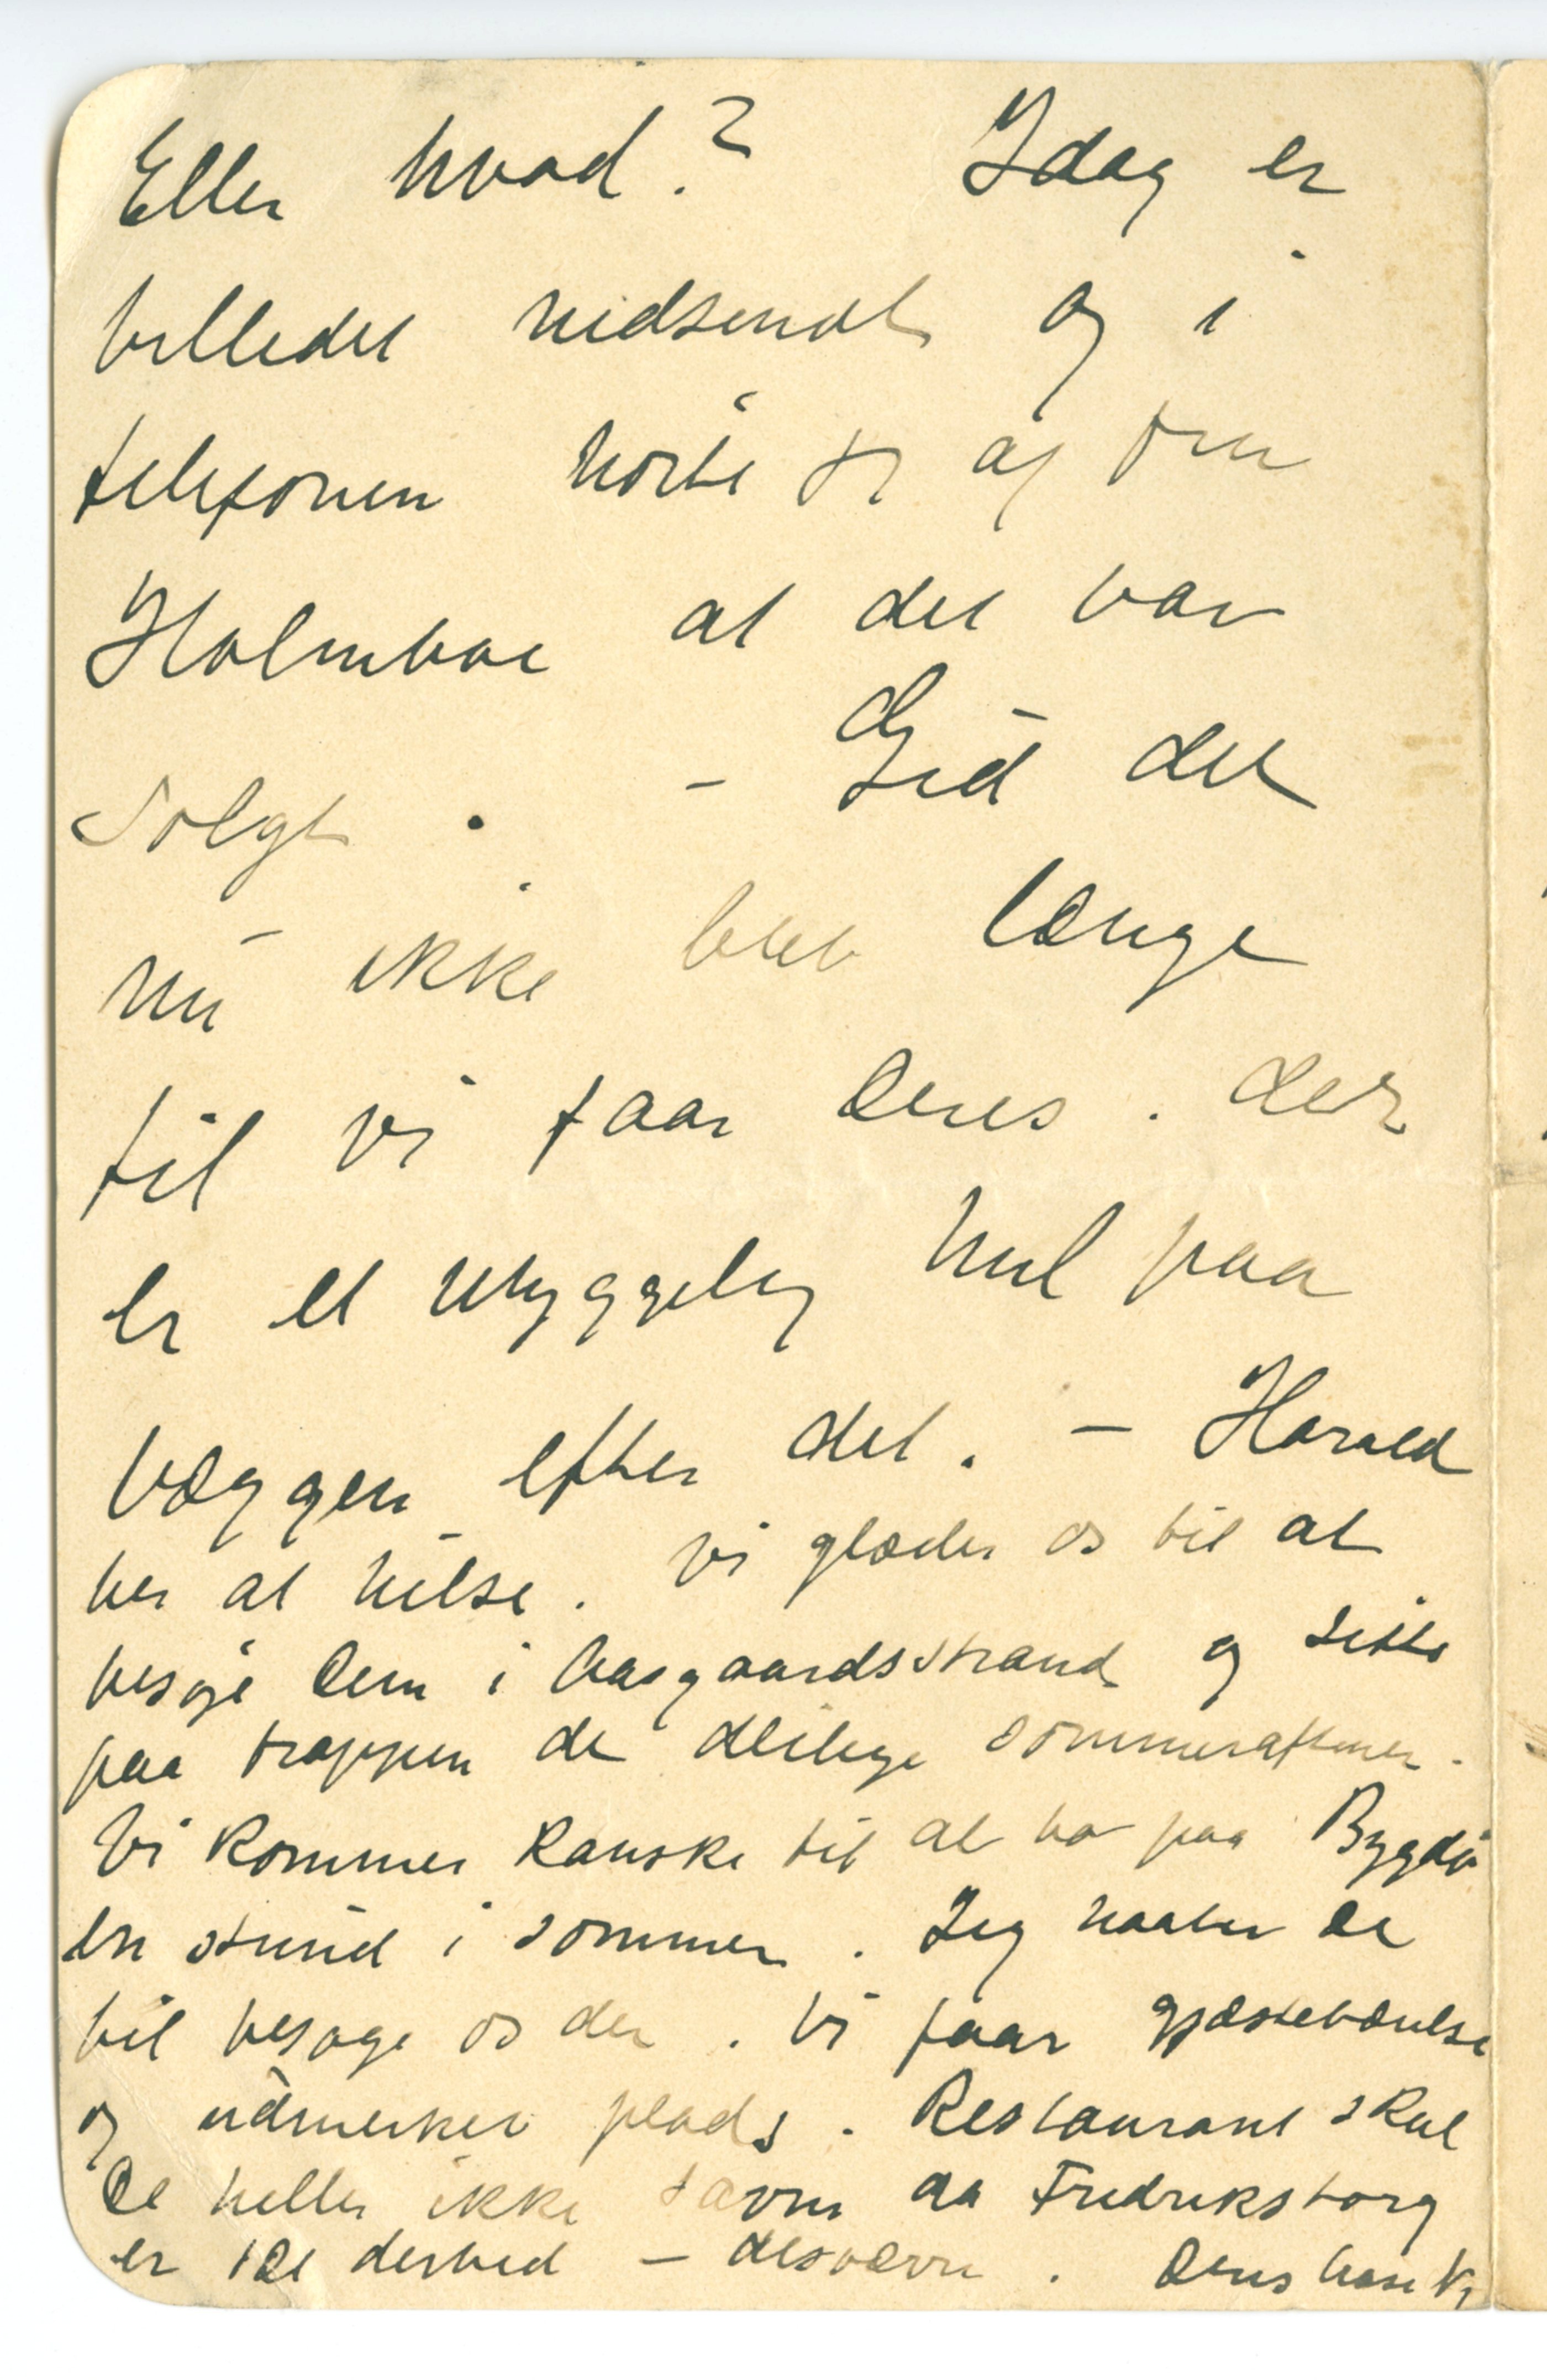 Eller hvad? Idag er
billedet nedsendt og i
telefonen hørte jeg af fru
Holmboe at det var
solgt. – Gid det
nu ikke blev længe
til vi faar Deres. Der
er et uhyggelig hul paa
væggen efter det. – Harald
ber at hilse. Vi glæder os til at
besøge Dem i Aasgaardsstrand og sitte
paa trappen de deilige sommeraftener.
Vi kommer kanske til at bo paa Bygdø
en stund i sommer. Jeg haaber De
vil besøge os der. Vi faar gjæsteværelse
og udmerket plads. Restaurant skal
De heller ikke savne da Fredriksborg
er tæt derved – desværre. Deres